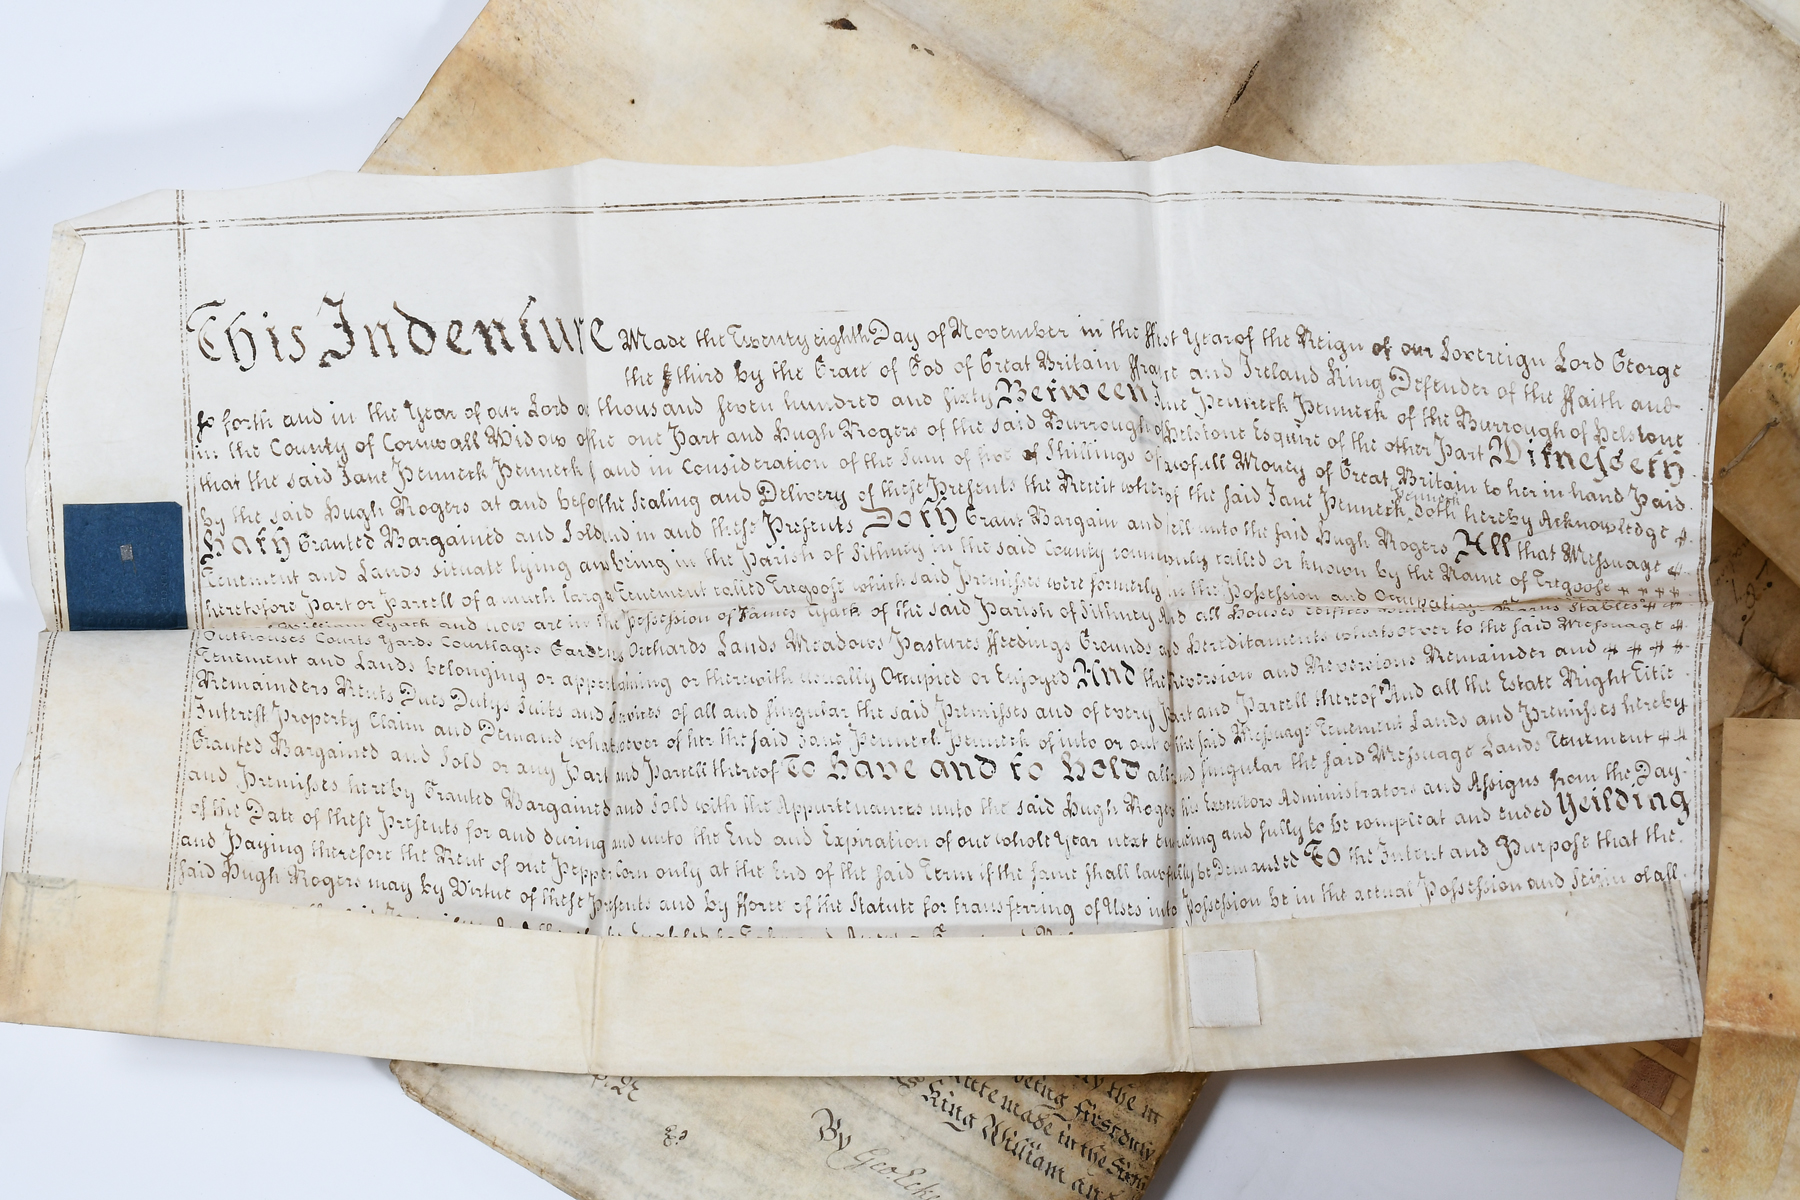 This Indenture Made the Twenty eighth Day of November in the ffirst Year of the Reign of our Sovereign Lord George
the third by the Grace of God of Great Britain ffrance and Ireland King Defender of the ffaith and
so forth and in the Year of our Lord one thousand seven hundred and sixty Between Jane Penneck Penneck of the Burrough of Helstone
in the County of Cornwall Widow of the one Part and Hugh Rogers of the said Burrough of Helstone Esquire of the other Part Witnesseth
that the said Jane Penneck Penneck for and in Consideration of the Sum of five Shillings of lawfull Money of Great Britain to her in hand Paid
by the said Hugh Rogers at and before the Sealing and Delivery of these Presents the Receit whereof the said Jane Penneck Penneck doth hereby Acknowledge
Hath Granted Bargained and Sold and in and these Presents Doth Grant Bargain and sell unto the said Hugh Rogers All that Messuage
Tenement and Lands situate lying and being in the Parish of Sithney in the said County commonly called or known by the Name of Tregoose
heretofore Part or Parcell of a much large Tenement called Tregoose which said Premisses were formerly in the Possession and Occupation
William Tyack and now are in the Possession of James Tyack of the said Parish of Sithney And all Houses Edifices Buildings Barns Stables
Outhouses Courts Yards Courtlages Gardens Orchards Lands Meadows Pastures ffeedings Grounds and Hereditaments whatsoever to the said Messuage
Tenement and Lands belonging or appertaining or therewith usually Occupied or Enjoyed And the Reversion and Reversions Remainder and
Remainders Rents Dues Dutys Suits and Services of all and singular the said Premisses and of every Part and Parcell thereof And all the Estate Right Title
Interest Property Claim and Demand whatsoever of her the said Jane Penneck Penneck of into or out of the said Messuage Tenement Lands and Premisses hereby
Granted Bargained and Sold or any Part and Parcell thereof To have and to hold all and singular the said Messuage Lands Tenement
and Premisses hereby Granted Bargained and Sold with the Appurtenances unto the said Hugh Rogers his Executors Administrators and Assigns from the Day
of the Date of these Presents for and during and unto the End and Expiration of one whole Year next ensuing and fully to be compleat and ended Yeilding
and Paying therefore the Rent of one Peppercorn only at the End of the said Term if the same shall lawfully be Demanded To the Intent and Purpose that the
said Hugh Rogers may by Virtue of these Presents and by fforce of the Statute for transferring of Uses into Possession be in the actual Possession and Seizin of all
by the in
being first duly
made in the Sixth
King William and
By Geo.